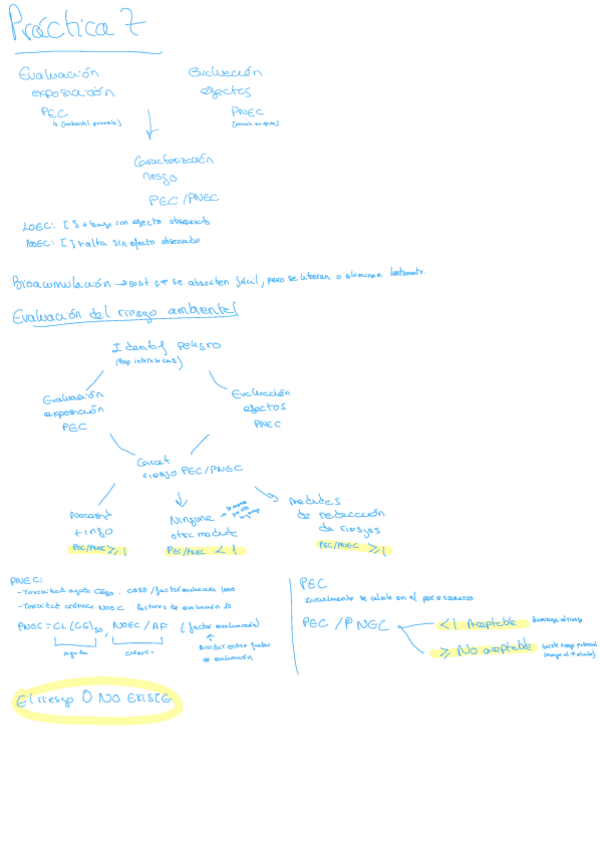 Práctica 7
Evaluación
exposición
PEC
Evaluación
efectos
PNEC
Caracterización
riesgo
PEC/PNEC
LOEC: [ ] + baja con efecto observado
NOEC: [ ] + alta sin efecto observado
Bioacumulación → sust que se absorben fácil, pero se liberan o eliminan lentamente
Evaluación del riesgo ambiental
Identif Peligro
Evaluación
exposición
PEC
Evaluación
efectos
PNEC
Caract
riesgo PEC/PNEC
Necesit
+ info
PEC/PNEC ≥ 1
Ninguna
otra medida
PEC/PNEC < 1
medidas
de reducción
de riesgos
PEC/PNEC ≥ 1
PNEC:
- Toxicidad aguda / factor evaluación 1000
- Toxicidad crónica NOEC factores de evaluación 10
PNEC = CL(CE)50, NOEC/AF (factor evaluación)
aguda
crónica
dividir entre factor
de evaluación
PEC
Inicialmente se calcula en el peor escenario
PEC/PNEC
<1 Aceptable
≥ No aceptable
El riesgo 0 NO EXISTE